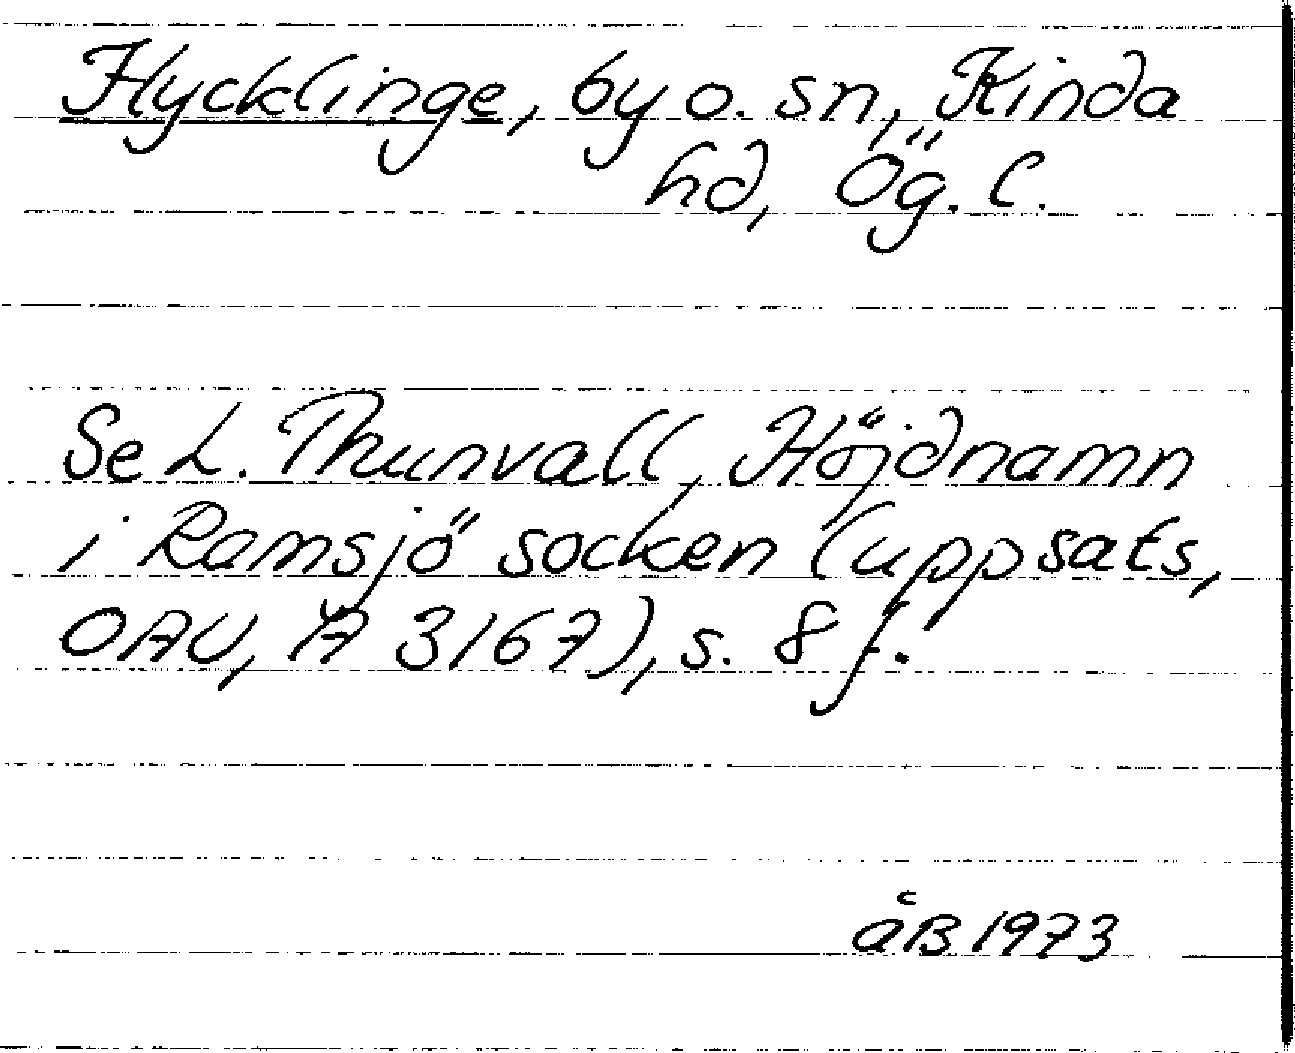 Hycklinge, by o. sn, Kinda
hd, Ög. l.
Se L. Thunvall, Höjdnamn
i Ramsjö socken (uppsats,
OAU, A 3167), s. 8 f.
ÅB 1973